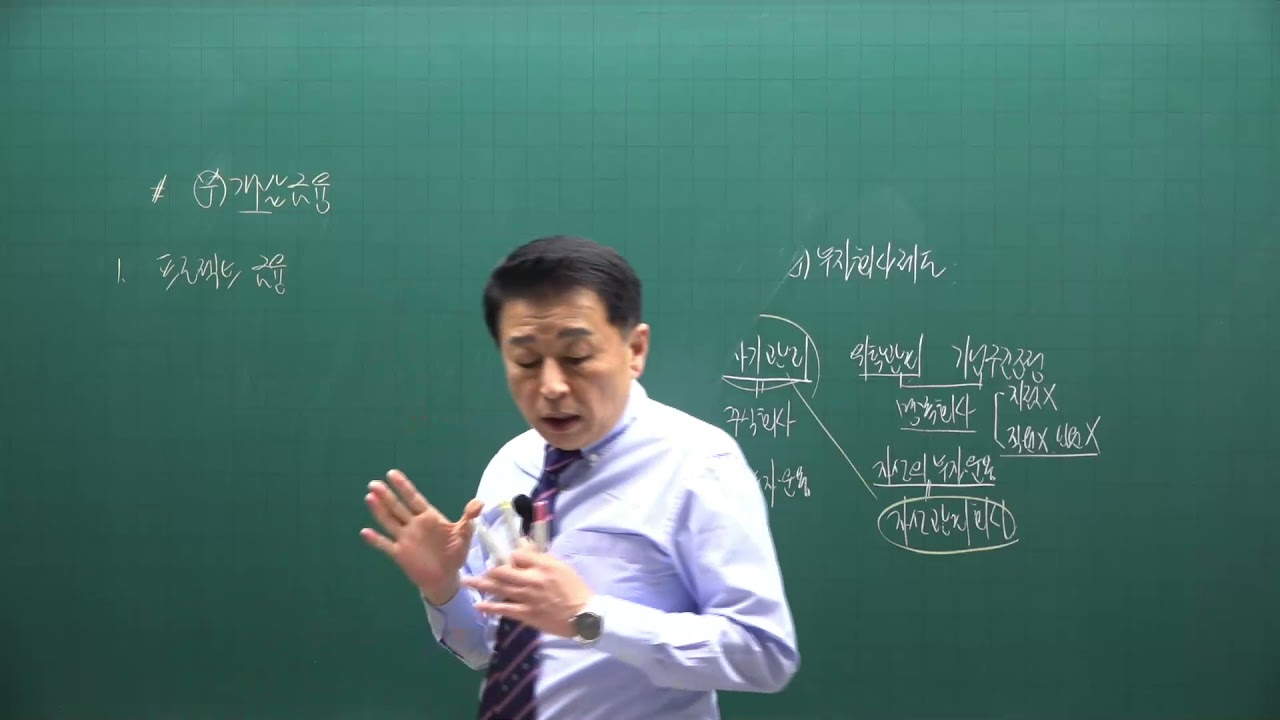 # (부)개발금융
1. 프로젝트 금융
1) 투자회사제도
자기관리 위탁관리 기업구조조정
주식회사 명목회사 지점X
직원X 임원X
투자·운용 자산의 투자·운용
자산관리회사